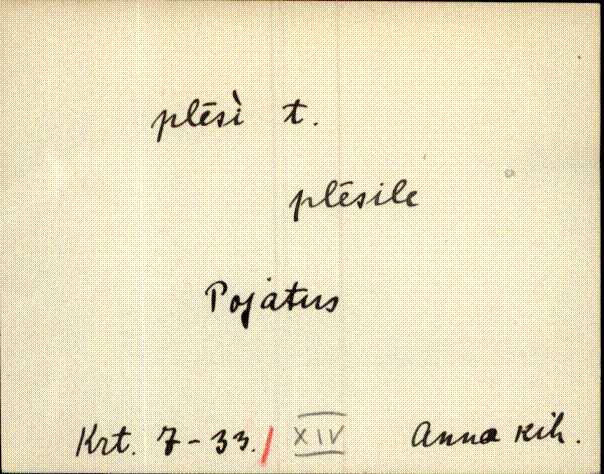 plēsì t.
plēsile
Pojatus
Krt. 7-33./ XIV Anna kih.